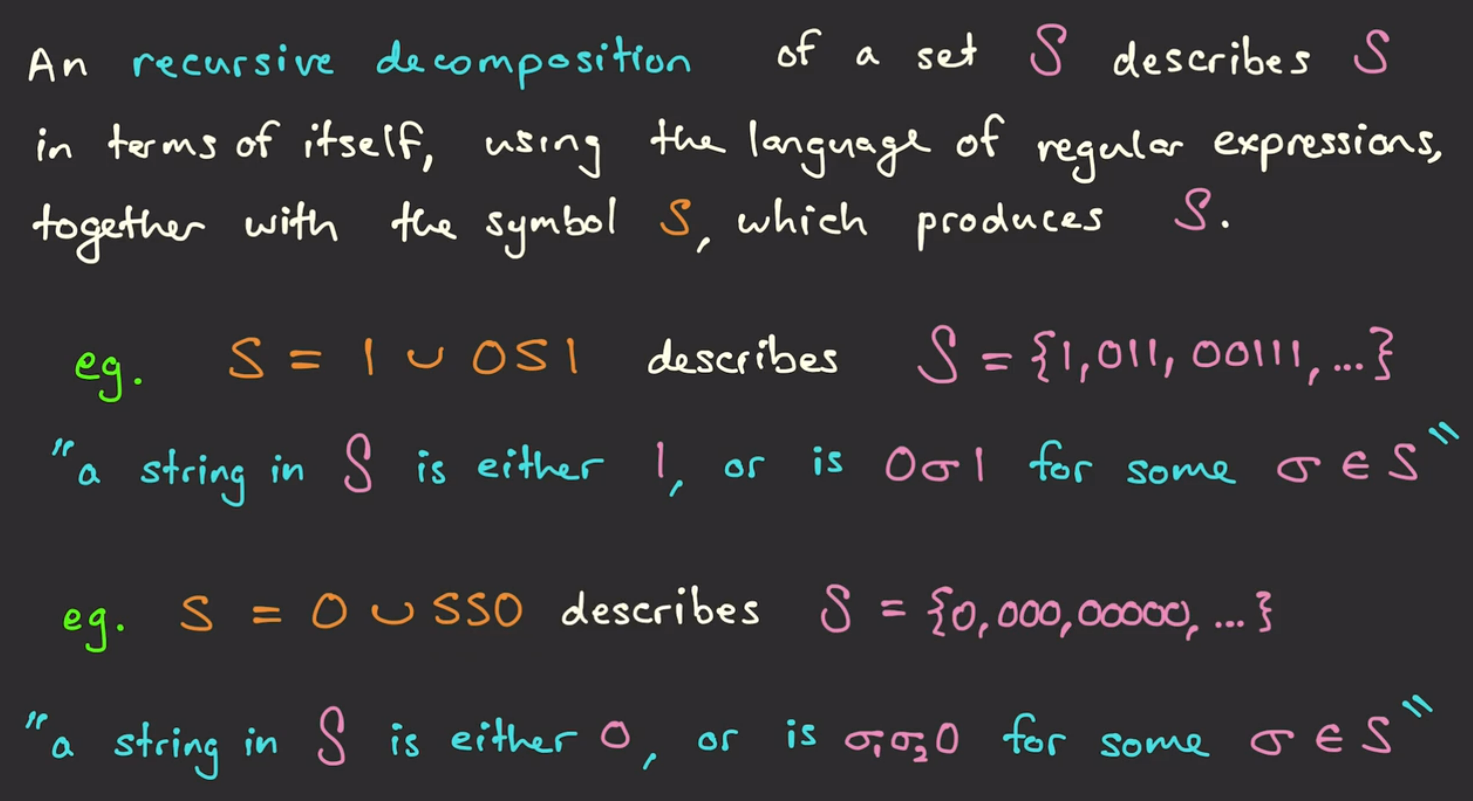 An recursive decomposition of a set S describes S
in terms of itself, using the language of regular expressions,
together with the symbol S, which produces S.
eg. S = 1 ∪ 0S1 describes S = {1, 011, 00111, ...}
"a string in S is either 1, or is 0σ1 for some σ ∈ S"
eg. S = 0 ∪ SS0 describes S = {0, 000, 00000, ... }
"a string in S is either 0, or is σ₁σ₂0 for some σ ∈ S"